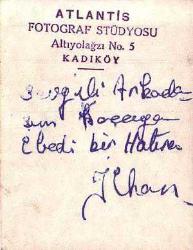 ATLANTİS
FOTOGRAF STÜDYOSU
Altıyolağzı No. 5
KADIKÖY
Sevgili Arkada
şım
Ebedi bir Hatıra
İlhan